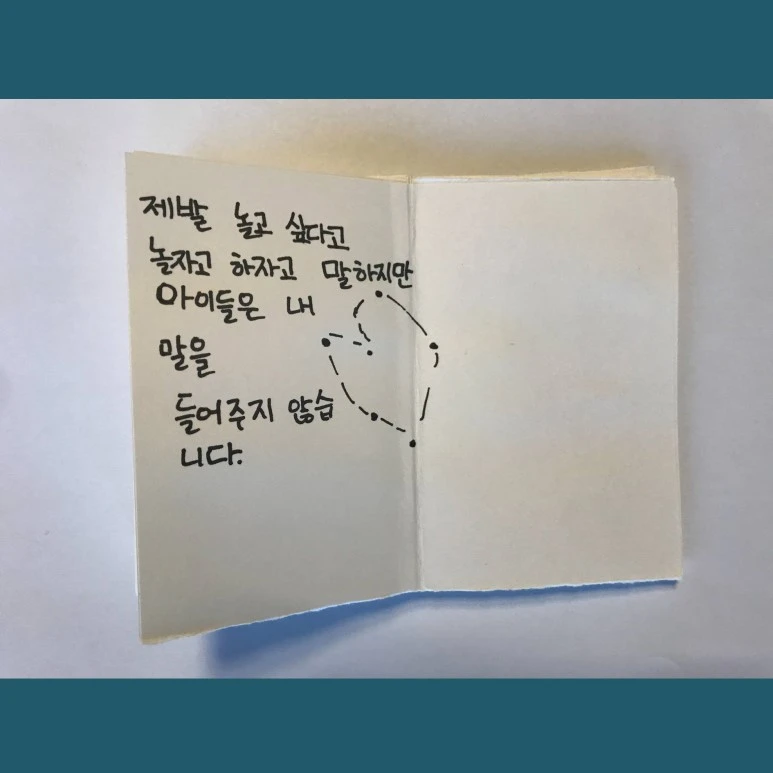 제발 놀고 싶다고
놀자고 하자고 말하지만
아이들은 내
말을
들어주지 않습
니다.